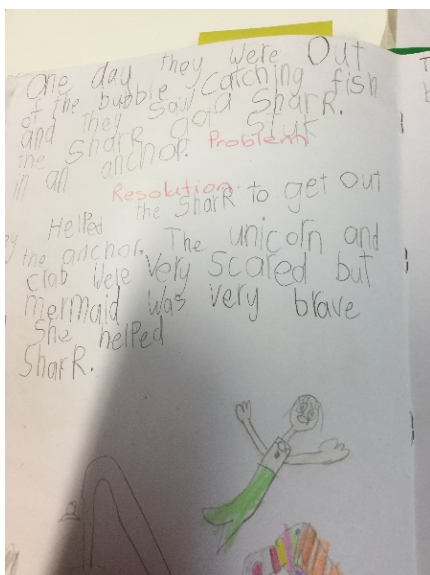 One day they were Out
of the bubble catching fish
and they saw a SharR.
the SharR got Stuk
in an anchor. Problem
Resolution.
Helped the SharR to get out
the anchor. The unicorn and
crab were very scared but
mermaid was very brave
She helped
SharR.